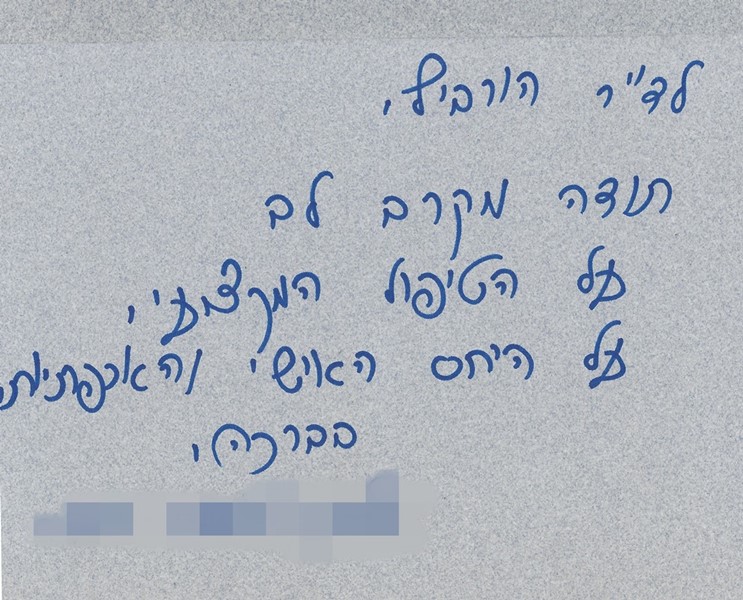 לד"ר הורביץ,
תודה מקרב לב
על הטיפול המקצועי,
על היחס האישי והאכפתיות,
בברכה,